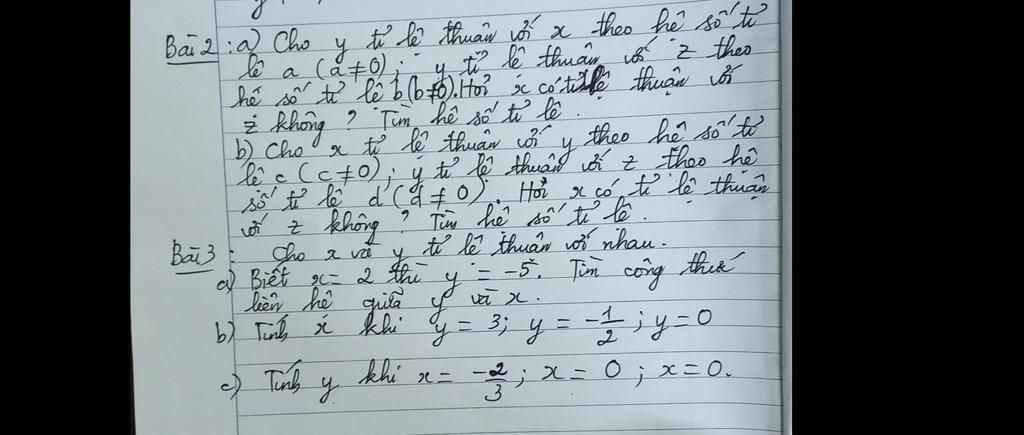 Bài 2 : a) Cho y tỉ lệ thuận với x theo hệ số tỉ
lệ a (a ≠ 0) ; y tỉ lệ thuận với z theo
hệ số tỉ lệ b (b ≠ 0). Hỏi x có tỉ lệ thuận với
z không ? Tìm hệ số tỉ lệ .
b) Cho x tỉ lệ thuận với y theo hệ số tỉ
lệ c (c ≠ 0) ; y tỉ lệ thuận với z theo hệ
số tỉ lệ d (d ≠ 0) . Hỏi x có tỉ lệ thuận
với z không ? Tìm hệ số tỉ lệ .
Bài 3 : Cho x và y tỉ lệ thuận với nhau .
a) Biết x = 2 thì y = -5 . Tìm công thức
liên hệ giữa y và x .
b) Tính x khi y = 3 ; y = -1/2 ; y = 0
c) Tính y khi x = -2/3 ; x = 0 ; x = 0 .